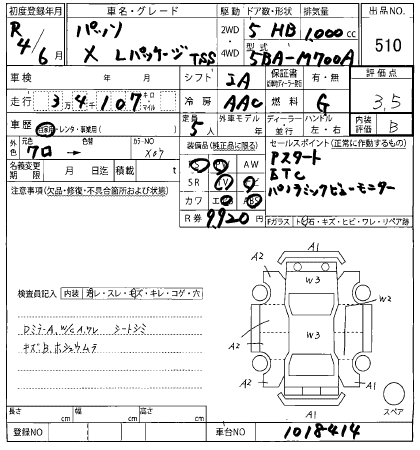 初度登録年月 車名・グレード 駆動 ドア数・形状 排気量 出品NO.
R 4/6月 パッソ 2WD 5 HB 1,000 cc 510
X Lパッケージ TSS 4WD 型式 5BA-M700A
車検 年 月 シフト IA 保証書 有・無 評価点
走行 3万4千107 キロ・マイル 冷房 AAC 燃料 G 3.5
車歴 自家用・レンタ・事業用( ) 定員 5人 外車モデル 年 ディーラー・並行 ハンドル 左・右 内装評価 B
外色 元色 クロ 色替 カラーNO X07
装備品(純正品に限る) セールスポイント(正常に作動するもの)
名義変更期限 月 日迄 積載 t
PS PW AW
SR TV ナビ
カワ エアB ABS
R券 9,920円
Pスタート
ETC
パノラミックビューモニター
注意事項(欠品・修復・不具合箇所および状態)
Fガラス トビ石・キズ・ヒビ・ワレ・リペア跡
検査員記入 内装 汚レ・スレ・キズ・キレ・コゲ・穴
DミラーA, W/C A, サレ シートシミ
キズ, B, ホシュウムラ
A1
A2 A2
W3
W2
A2 W3
A2 A2
A1
スペア
長さ cm 幅 cm 高さ cm
登録NO 車台NO 1018414